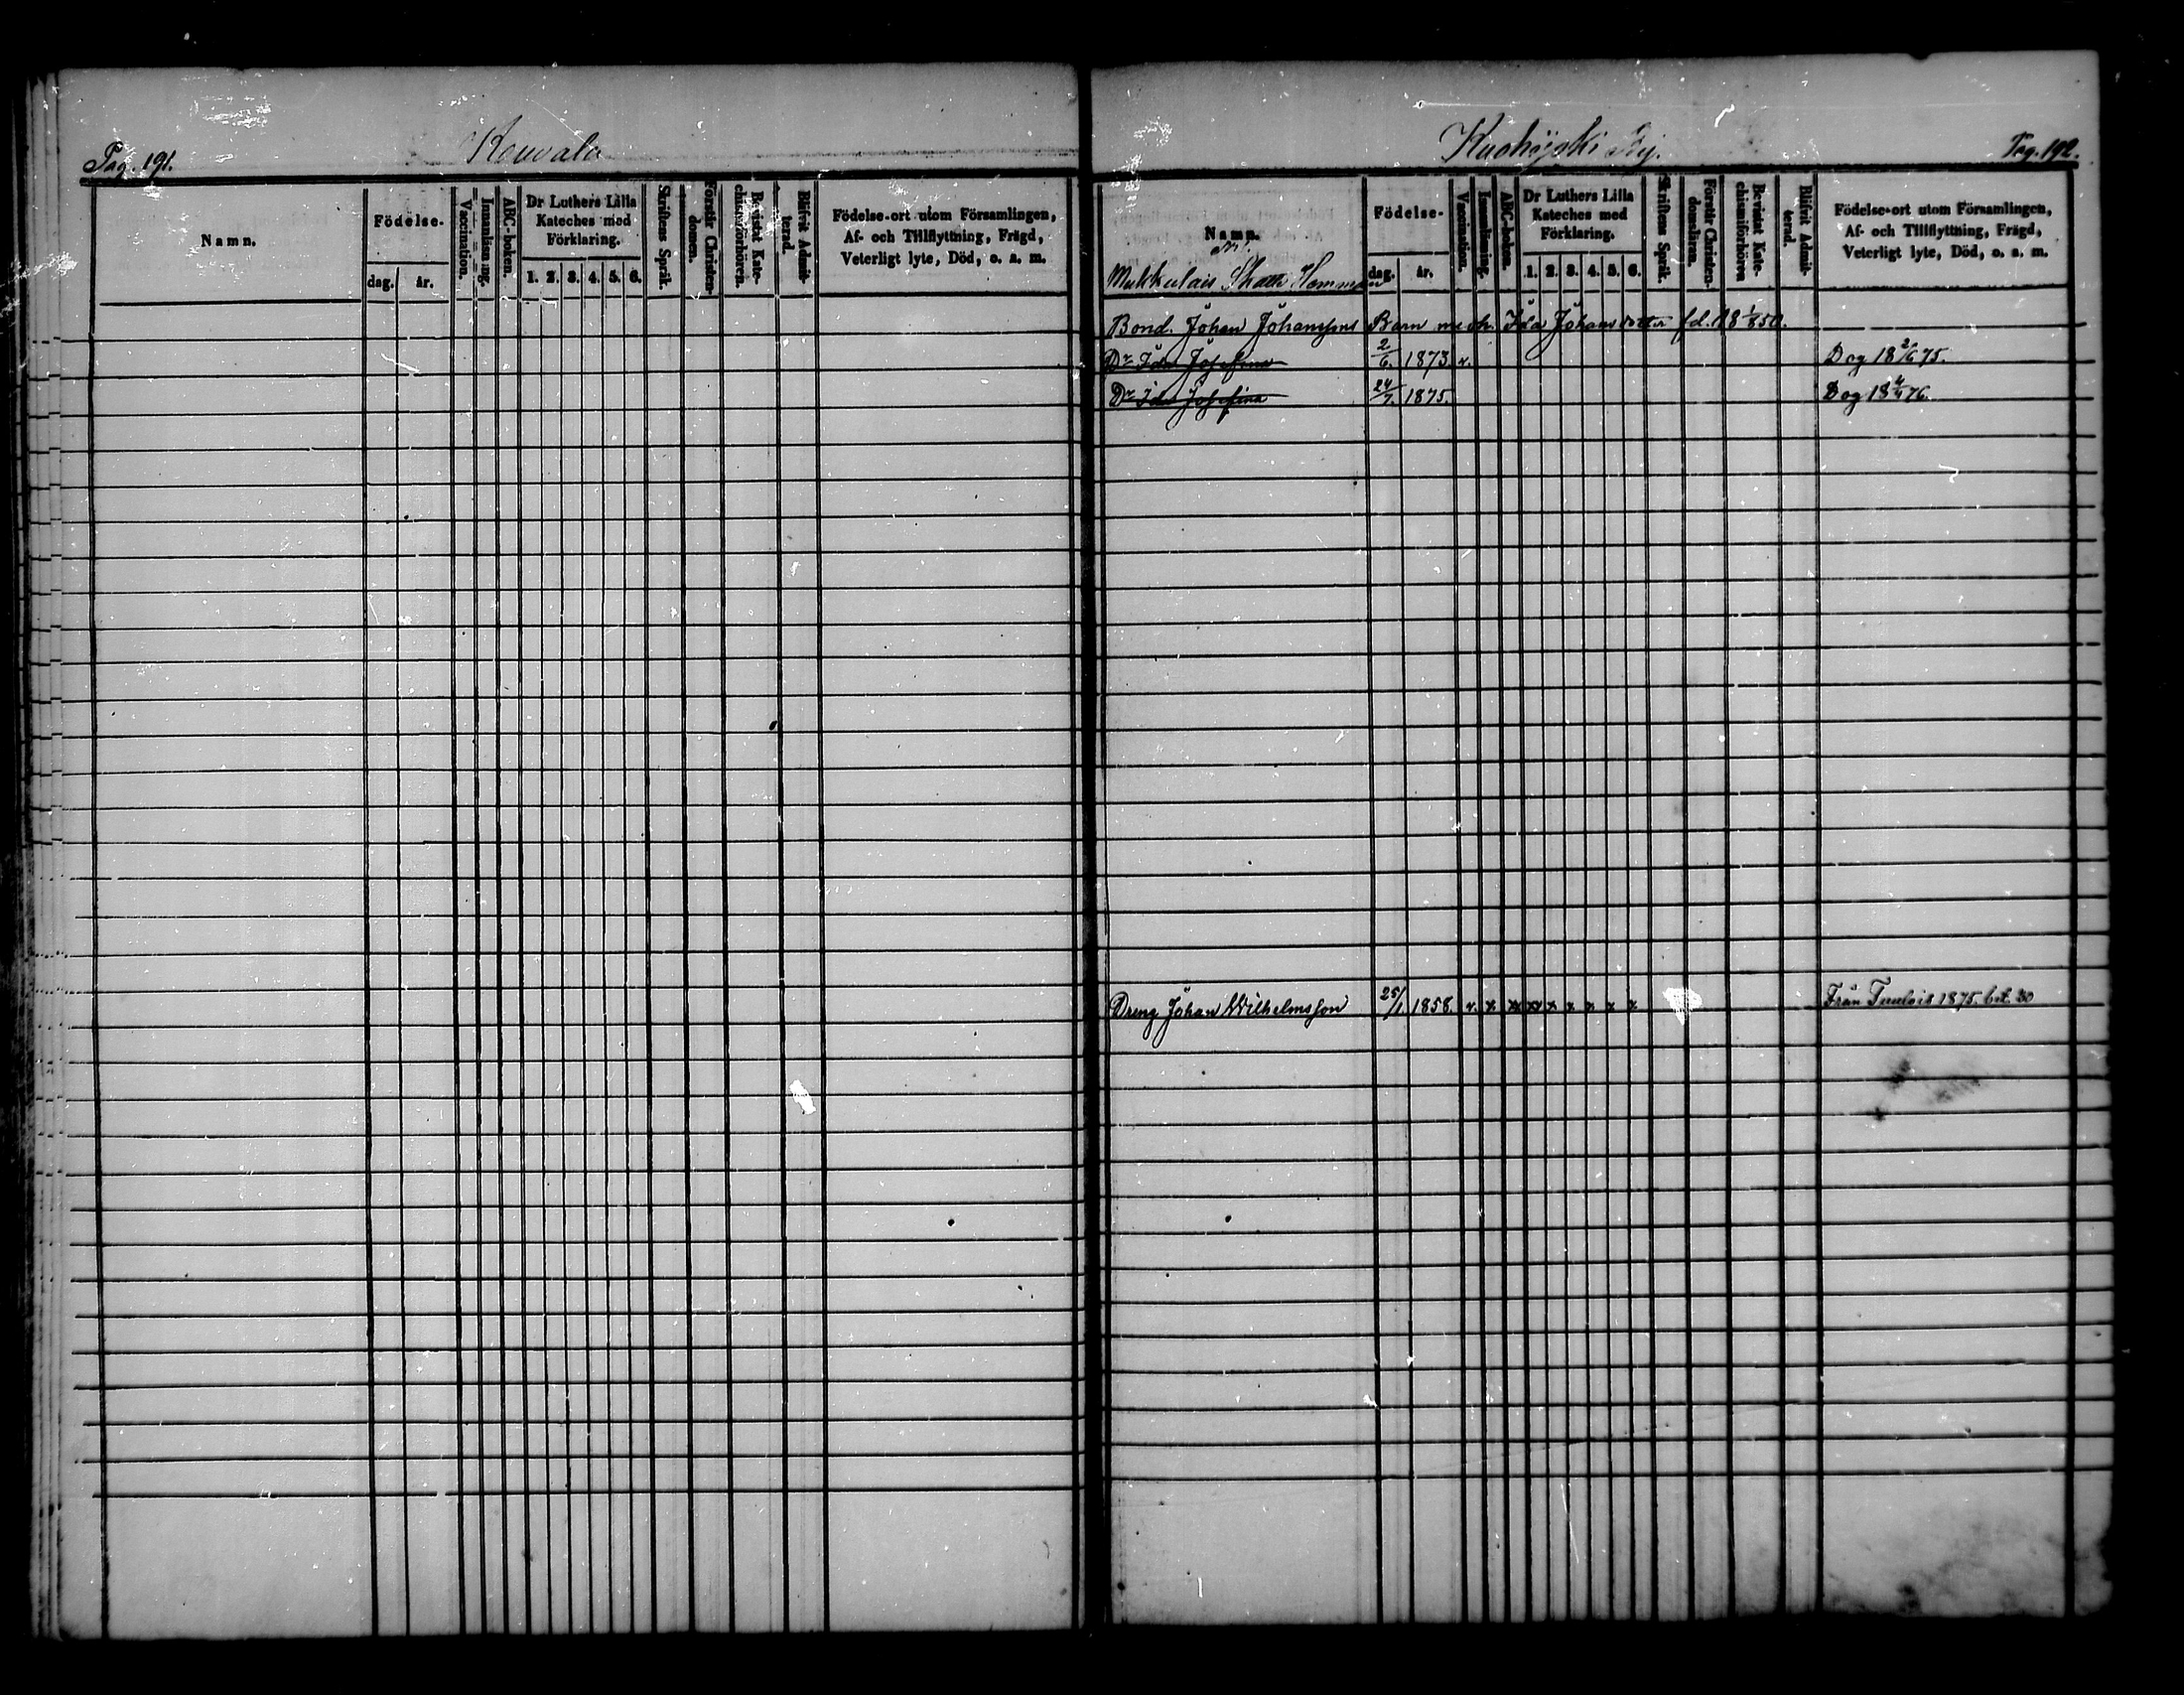 Pag. 191.
Kouvala
Namn.
Födelse-
dag.
år.
Vaccination.
Innanläsning.
ABC-boken.
Dr Luthers Lilla
Kateches med
Förklaring.
1. 2. 3. 4. 5. 6.
Skriftens Språk.
Förstår Christen-
domen.
Bevistat Kate-
chismiförhören.
Blifvit Admit-
terad.
Födelse-ort utom Församlingen,
Af- och Tillflyttning, Frägd,
Veterligt lyte, Död, o. s. m.
Kuohijoki By.
Pag. 192.
Namn.
Födelse-
dag.
år.
Vaccination.
Innanläsning.
ABC-boken.
Dr Luthers Lilla
Kateches med
Förklaring.
1. 2. 3. 4. 5. 6.
Skriftens Språk.
Förstår Christen-
domsläran.
Bevistat Kate-
chismiförhören
Blifvit Admit-
terad.
Födelse-ort utom Församlingen,
Af- och Tillflyttning, Frägd,
Veterligt lyte, Död, o. s. m.
Mukkulais Hemman
Bond. Johan Johanssons Barn med h. Ida Johansdotter fd. 18 1/8 50.
Dr Ida Josefina 2/6. 1873. x. Dog 18 2/6 75.
Dr Ida Josefina 24/7. 1875. Dog 18 4/4 76.
Dreng Johan Wilhelmsson 25/1. 1858. x. x xx xx x x x x x Från Tuulois 1875. bet. 30